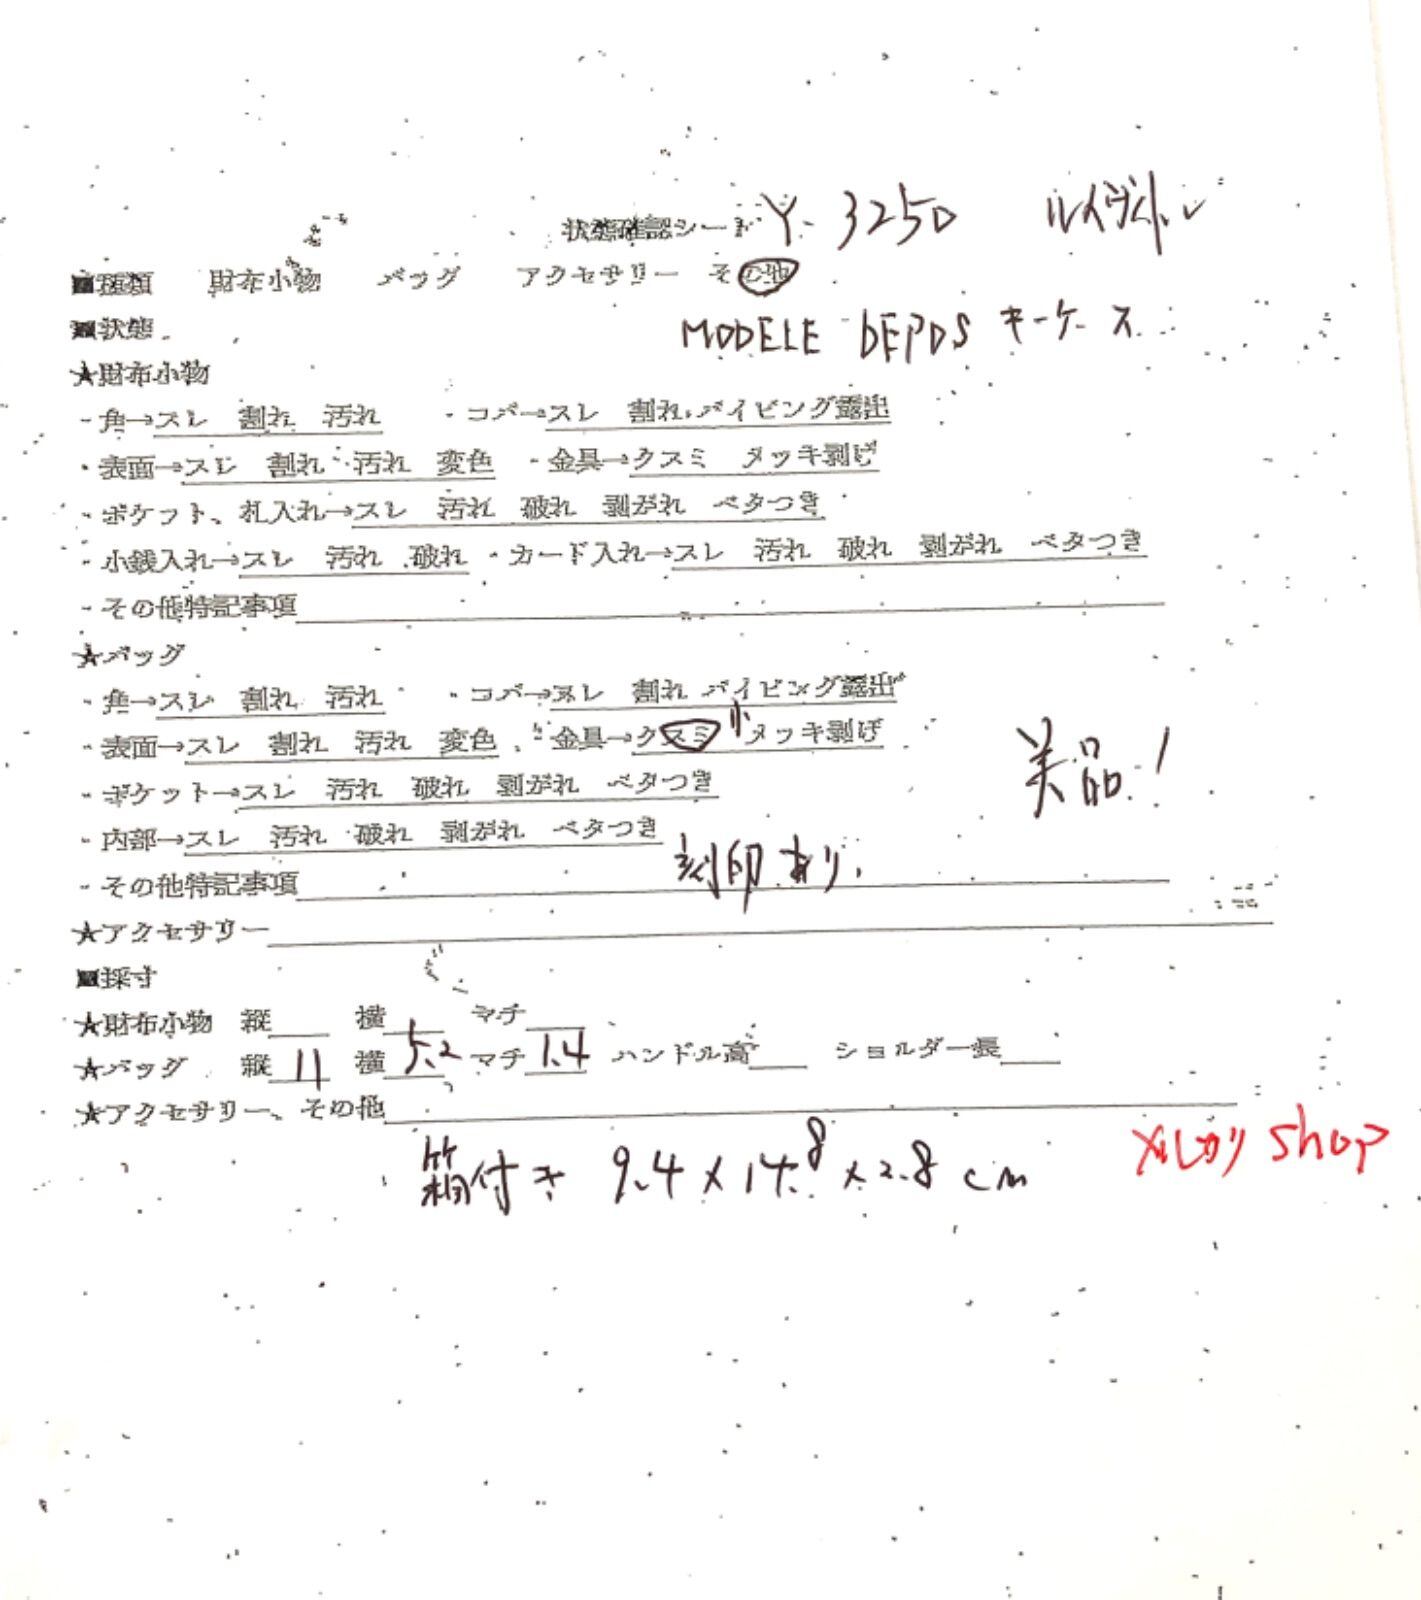 状態確認シート Y-3250 ルイヴィトン
■種類 財布小物 バッグ アクセサリー その他
■状態 MODELE DEPOS キーケース
★財布小物
・角→スレ 割れ 汚れ ・コバ→スレ 割れ パイピング露出
・表面→スレ 割れ 汚れ 変色 ・金具→クスミ メッキ剥げ
・ポケット、札入れ→スレ 汚れ 破れ 剥がれ ベタつき
・小銭入れ→スレ 汚れ 破れ ・カード入れ→スレ 汚れ 破れ 剥がれ ベタつき
・その他特記事項
★バッグ
・角→スレ 割れ 汚れ ・コバ→スレ 割れ パイピング露出
・表面→スレ 割れ 汚れ 変色 ・金具→クスミ 小 メッキ剥げ
美品!
・ポケット→スレ 汚れ 破れ 剥がれ ベタつき
・内部→スレ 汚れ 破れ 剥がれ ベタつき
・その他特記事項 刻印あり.
★アクセサリー
■採寸
★財布小物 縦 横 マチ
★バッグ 縦 11 横 5.2 マチ 1.4 ハンドル高 ショルダー長
★アクセサリー、その他
メルカリ shop
箱付き 9.4×14.8×2.8cm